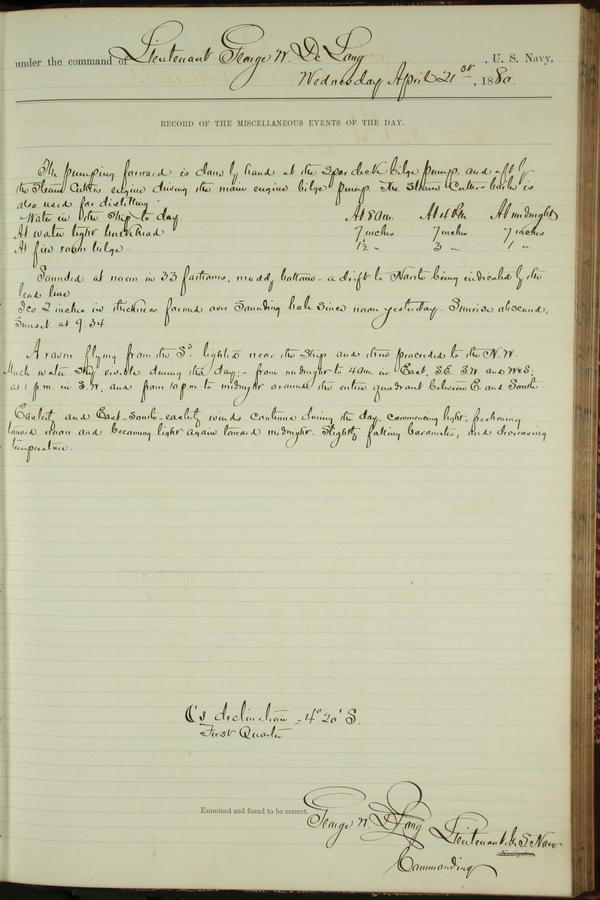 under the command of Lieutenant George W. De Long, U. S. Navy,
Wednesday April 21st, 1880.
RECORD OF THE MISCELLANEOUS EVENTS OF THE DAY.
The pumping forward is done by hand at the spar deck bilge pump, and aft by
the Steam Cutter engine driving the main engine bilge pump. The Steam Cutters boiler is
also used for distilling.
Water in the Ship to day At 8 am. At 4 Pm. At midnight
At water tight bulkhead 7 inches 7 inches 7 inches
At fire room bilge. 1½ " 3 " 1 "
Sounded at noon in 33 fathoms, muddy bottom - a drift to North being indicated by the
lead line
Ice 2 inches in thickness formed over Sounding hole since noon yesterday. Sunrise obscured,
Sunset at 9.34
A raven flying from the Sd. lighted near the Ship and then proceeded to the N.W.
Much water sky visible during the day:- from midnight to 4 am. in East, S.E. S.W. and W.S.
at 1 p.m. in S.W. and from 10 p.m. to midnight around the entire quadrant between E. and South.
Easterly and East-south-easterly winds continue during the day, commencing light, freshening
toward noon and becoming light again toward midnight. Slightly falling barometer, and decreasing
temperature.
☾'s declination = 4° 20' S.
First Quarter
Examined and found to be correct.
George W. De Long Lieutenant U. S. Navy
Navigator.
Commanding